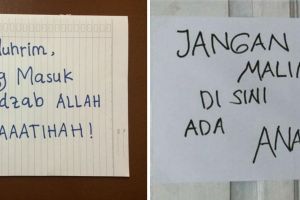 uhrim,
g Masuk
dzab ALLAH
AAATIHAH!
JANGAN
MALIN
DI SINI
ADA
ANA